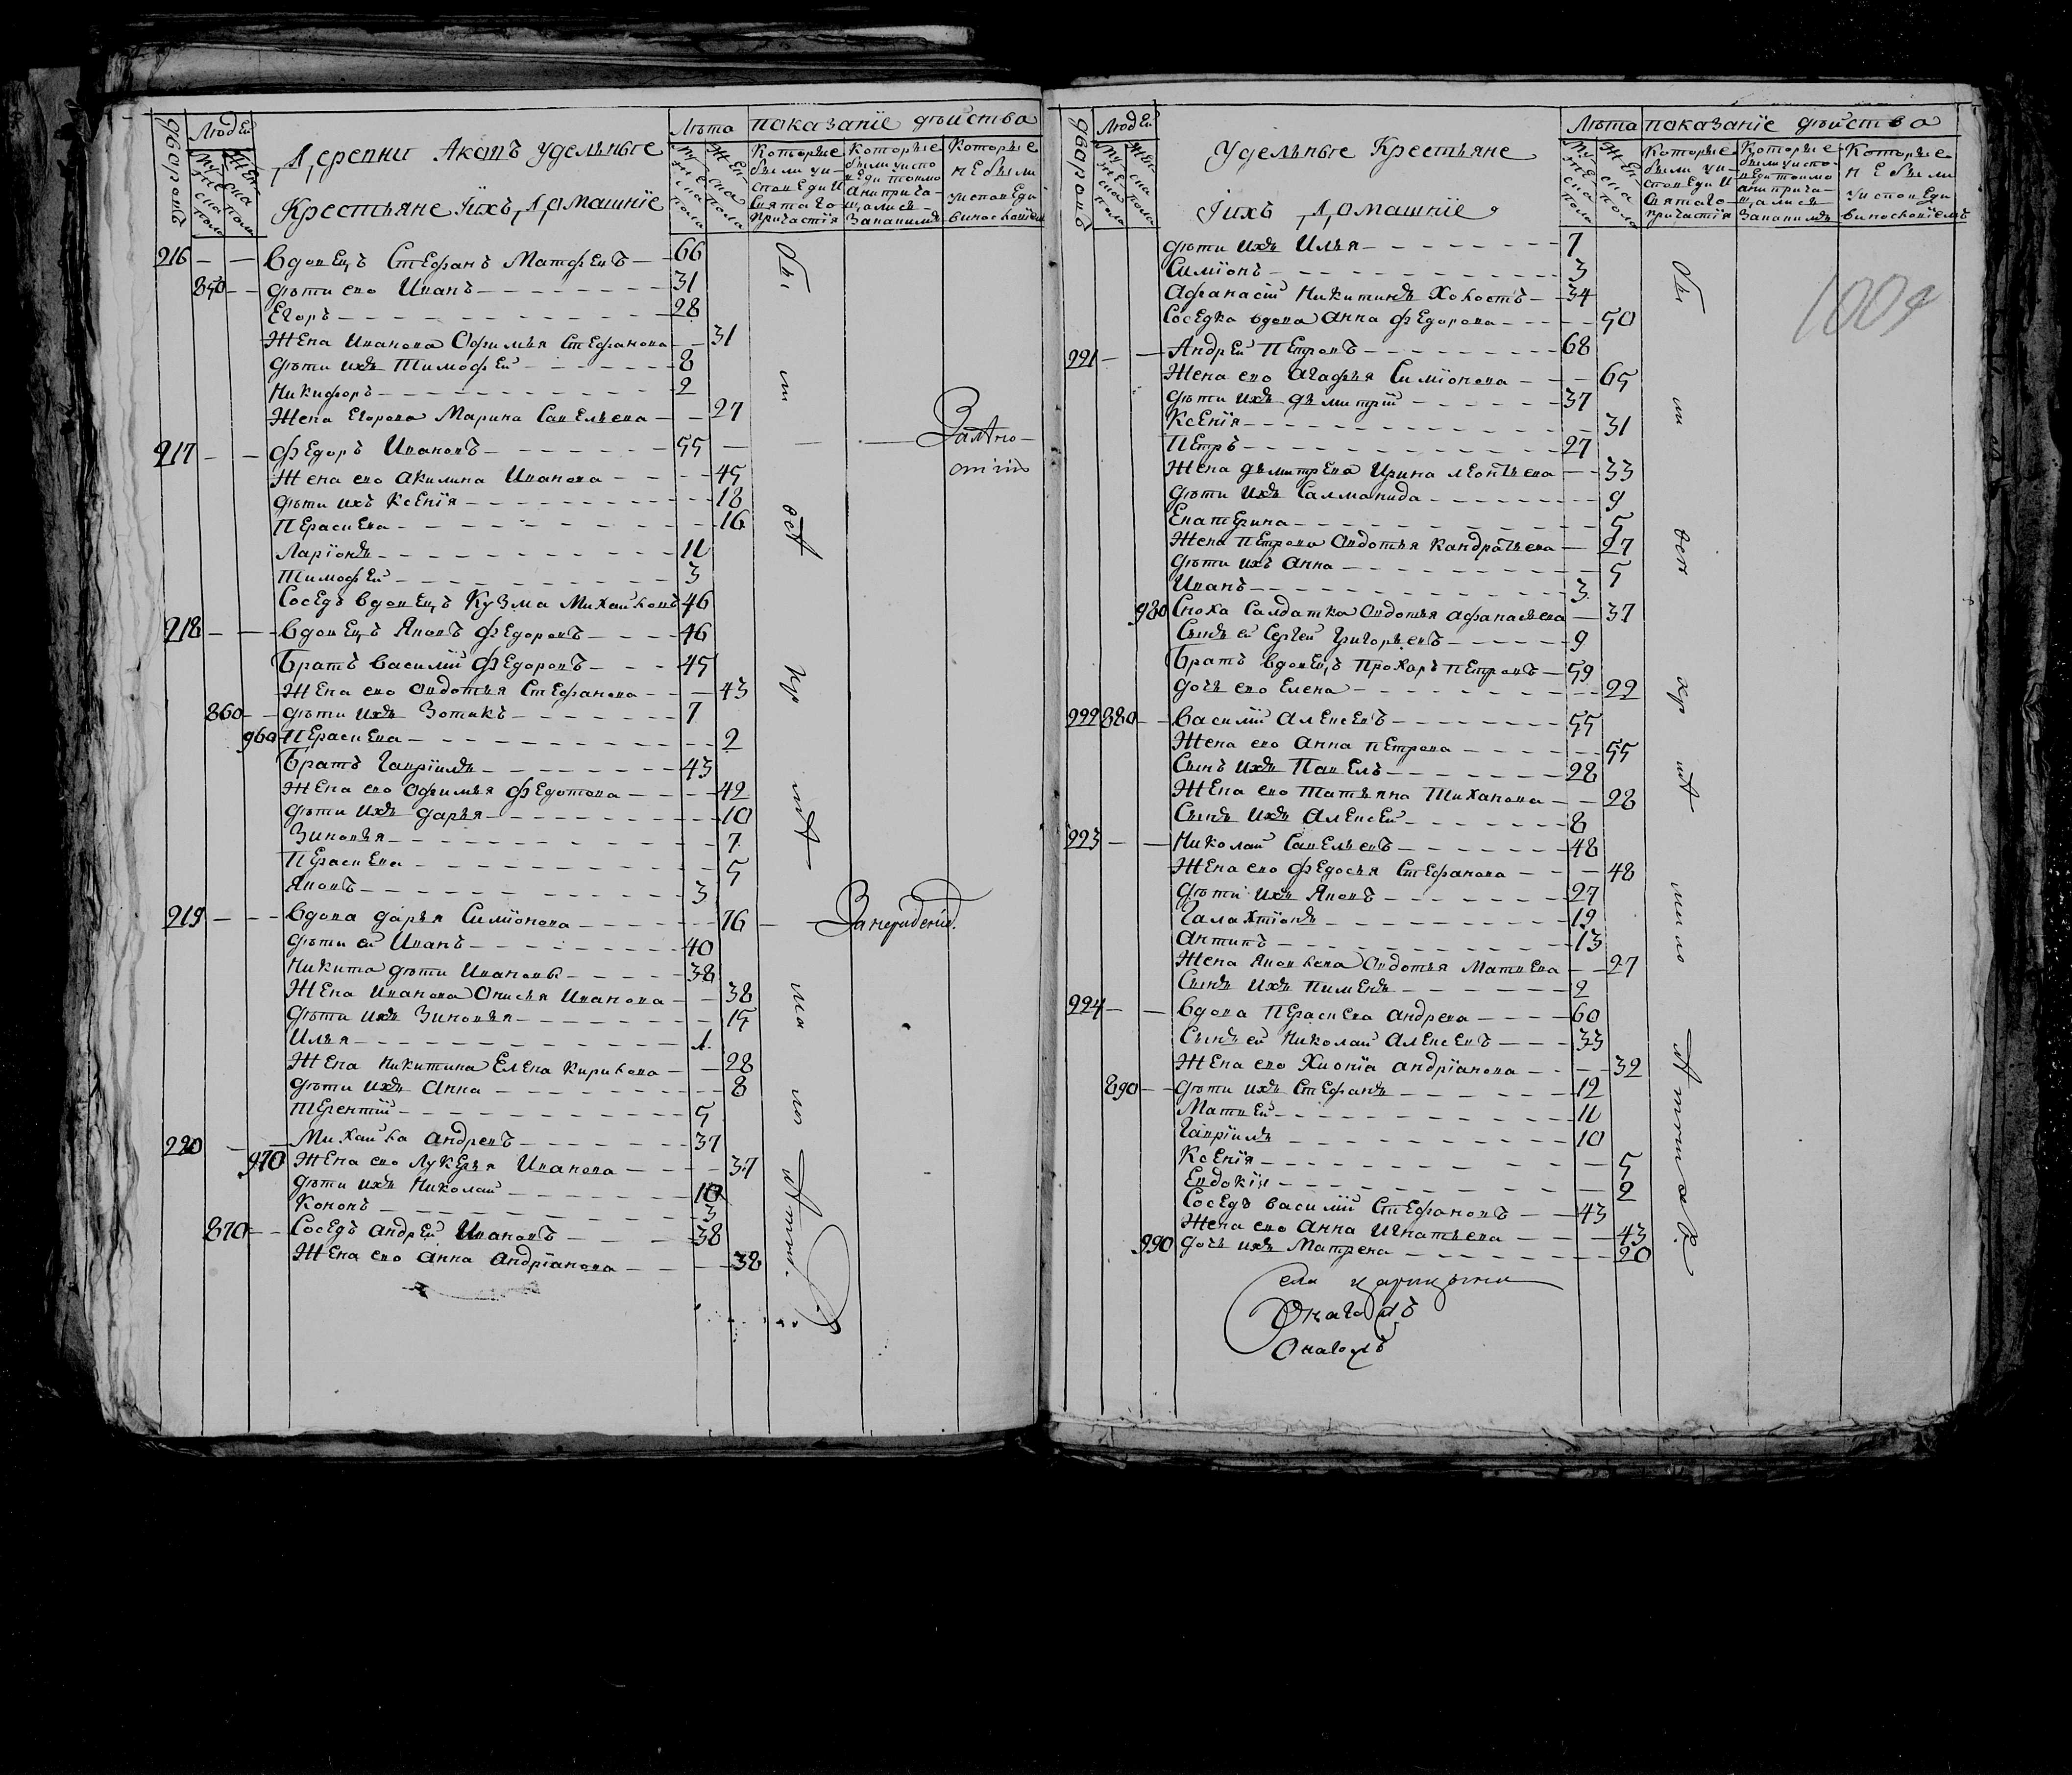 дворовъ Людей Лѣта показанiе дѣйства
Деревни Акатъ удельные
Крестьяне Iихъ Домашнiе
Мужеска пола Женска пола
Которые были уисповеди И Святаго причастiя
Которые были уисповеди токмо анипричащались Запанимъ
Которые неbыли уисповеди
216 – – вдовецъ Стефанъ Матфевъ – 66
850 – – дѣти ево Иванъ – 31
Егоръ – 28
Жена Иванова Офимья Стефанова – 31
дѣти ихъ Тимофей – 8
Никифоръ – 2
Жена Егорова Марина Савельева – 27
217 – – Федоръ Ивановъ – 55
Жена ево Акилина Иванова – 45
дѣти ихъ Ксенiя – 18
Пераскева – 16
Ларiонъ – 11
Тимофей – 3
Соседъ вдовецъ Кузма Михайловъ 46
218 – – вдовецъ Яковъ Федоровъ – 46
Братъ василiй Федоровъ – 45
Жена ево овдотья Стефанова – 43
860 – – дѣти ихъ Зотикъ – 7
960 Пераскева – 2
Братъ Гаврiилъ – 43
Жена ево Офимья Федотова – 42
дѣти ихъ дарья – 10
Зиновья – 7
Пераскева – 5
Яковъ – 3
219 – – вдова дарья Симiонова – 76 –
дѣти ей Иванъ – 40
Никита дѣти Ивановы – 38
Жена Иванова Онисья Иванова – 38
дѣти ихъ Зиновья – 15
Илья – 1
Жена Никитина Елена Кирилова – 28
дѣти ихъ Анна – 8
Терентiй – 5
220 – – Михайла андревъ – 37
970 Жена ево Лукерья Иванова – 37
дѣти ихъ Николай – 10
Кононъ – 3
870 – – Соседъ андрей Ивановъ – 38
Жена ево анна андрiанова – 38
дворовъ Людей Лѣта показанiе дѣйства
Удельные Крестьяне
Iихъ Домашнiе
Мужеска пола Женска пола
Которые были уисповеди И Святаго причастiя
Которые были уисповеди токмо анипричащались Запанимъ
Которые небыли уисповеди
1009
дѣти ихъ Илья – 7
Симiонъ – 3
Афанасiй Никитинъ Холостъ – 34
Соседка вдова Анна Федорова – 50
221 – – Андрей Петровъ – 68
Жена ево агафья Симiонова – 65
дѣти ихъ дьмитрiй – 37
Ксенiя – 31
Петръ – 27
Жена дьмитрева Ирина леонтьева – 33
дѣти ихъ Салманида – 9
Екатерина – 5
Жена петрова овдотья кандратьева – 27
дѣти ихъ анна – 5
Иванъ – 3
980 Сноха Салдатка овдотья афанасьева – 37
Сынъ ей Сергей Григорьевъ – 9
Братъ вдовецъ прохоръ петровъ – 59
дочь ево Елена – 22
222 880 – – василiй алексевъ – 55
Жена ево анна петрова – 55
Сынъ ихъ Павелъ – 28
Жена ево Татьяна Тиханова – 28
Сынъ ихъ алексей – 8
223 – – Николай Савельевъ – 48
Жена ево Федосья Стефанова – 48
дѣти ихъ Яковъ – 27
Галахтiонъ – 19
антипъ – 13
Жена Яковлева овдотья Матвева – 27
Сынъ ихъ пименъ – 2
224 – – вдова Пераскева андрева – 60
Сынъ ей Николай алексевъ – 33
Жена ево Хионiа андрiанова – 32
890 – – дѣти ихъ Стефанъ – 12
Матвей – 11
Гаврiилъ – 10
Ксенiя – 5
Евдокiя – 2
Соседъ василiй Стефановъ – 43
Жена ево анна Игнатьева – 43
990 дочь ихъ Матрена – 20